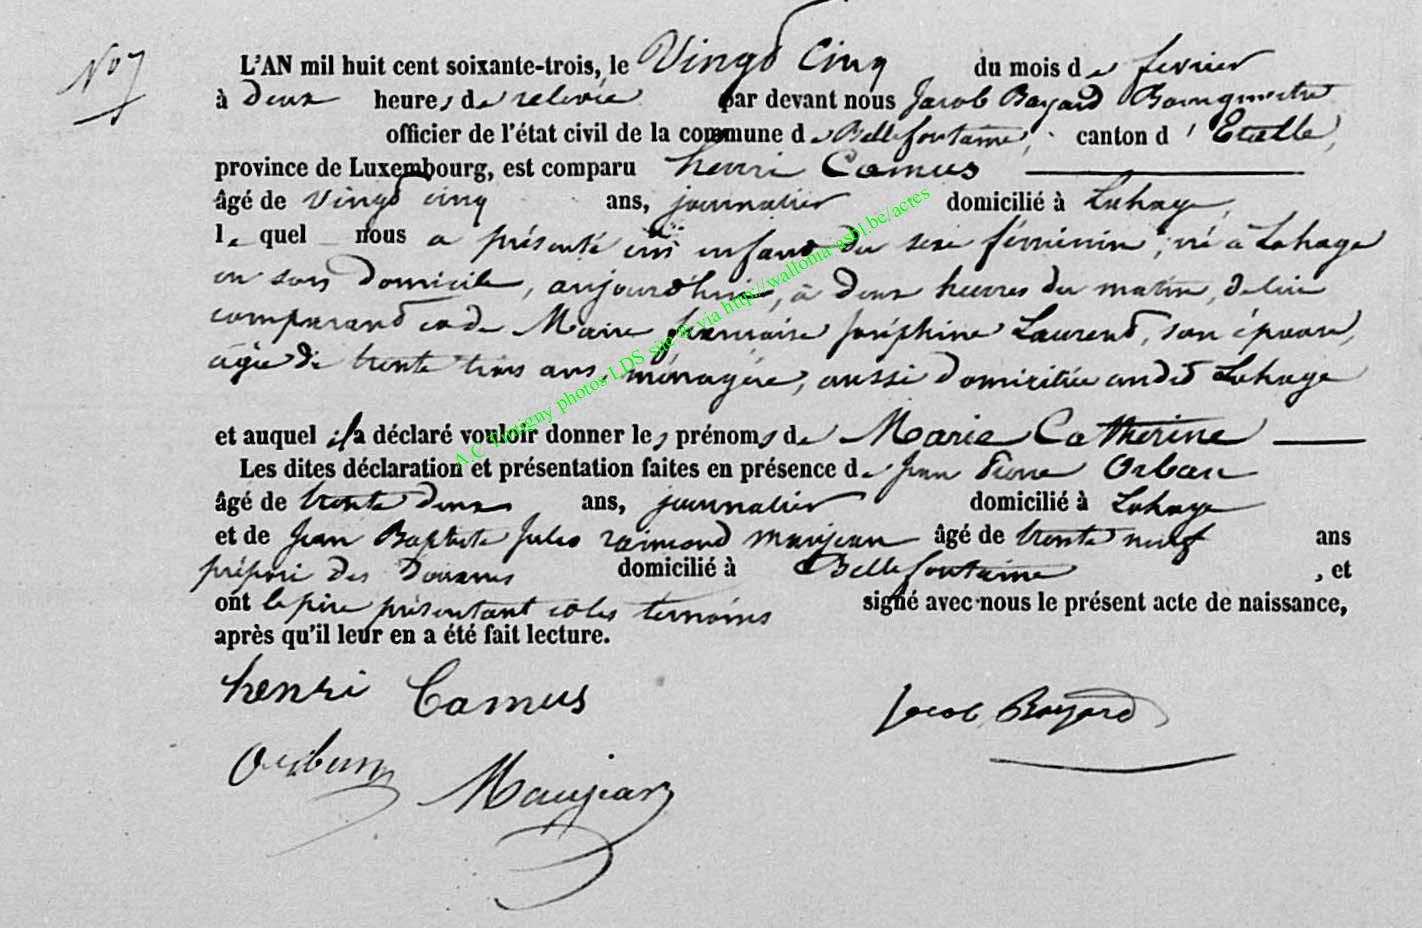 No 7
L'AN mil huit cent soixante-trois, le Vingt cinq du mois de fevrier
à deux heures de relevée par devant nous Jacob Bayard Bourgmestre
officier de l'état civil de la commune de Bellefontaine, canton d'Etalle,
province de Luxembourg, est comparu henri Camus
âgé de vingt cinq ans, journalier domicilié à Lahage,
lequel nous a présenté un enfant du sexe féminin, né à Lahage
en son domicile, aujourd'hui, à deux heures du matin, de lui
comparant et de Marie françoise Joséphine Laurent, son épouse,
agée de trente trois ans, ménagère, aussi domiciliée audit Lahage
et auquel il a déclaré vouloir donner les prénoms de Marie Catherine
Les dites déclaration et présentation faites en présence de Jean Pierre Orban
âgé de trente deux ans, journalier domicilié à Lahage
et de Jean Baptiste Jules raimond Manjean âgé de trente neuf ans
préposé des Douanes domicilié à Bellefontaine, et
ont le père présentant et les témoins signé avec nous le présent acte de naissance,
après qu'il leur en a été fait lecture.
henri Camus
Jacob Bayard
Orban
Manjean
A.C Tintigny photos LDS site & via http://wallonia-asbl.be/acres